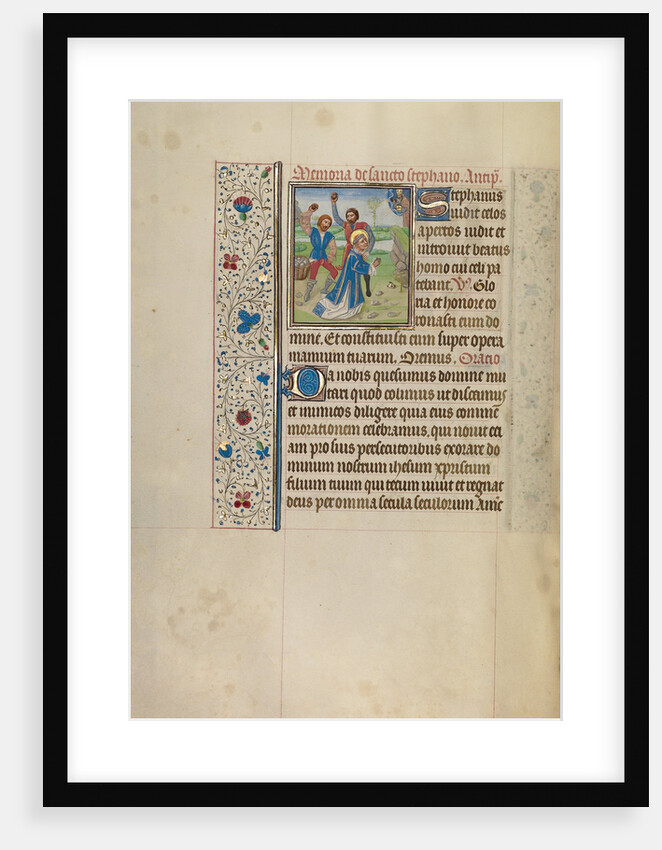 Memoria de sancto stephano. Antiph̄.
Stephanus
uidit celos
apertos uidit et
introiuit beatus
homo cui celi pa
tebant. V̓. Glo
ria et honore co
ronasti eum do
mine. Et constituisti eum super opera
manuum tuarum. Oremus. Oracio
Da nobis quesumus domine im
itari quod colimus ut discamus
et inimicos diligere quia eius comme
morationem celebramus, qui nouit eci
am pro suis persecutoribus exorare do
minum nostrum ihesum xpristum
filium tuum qui tecum uiuit et regnat
deus per omnia secula seculorum Amē